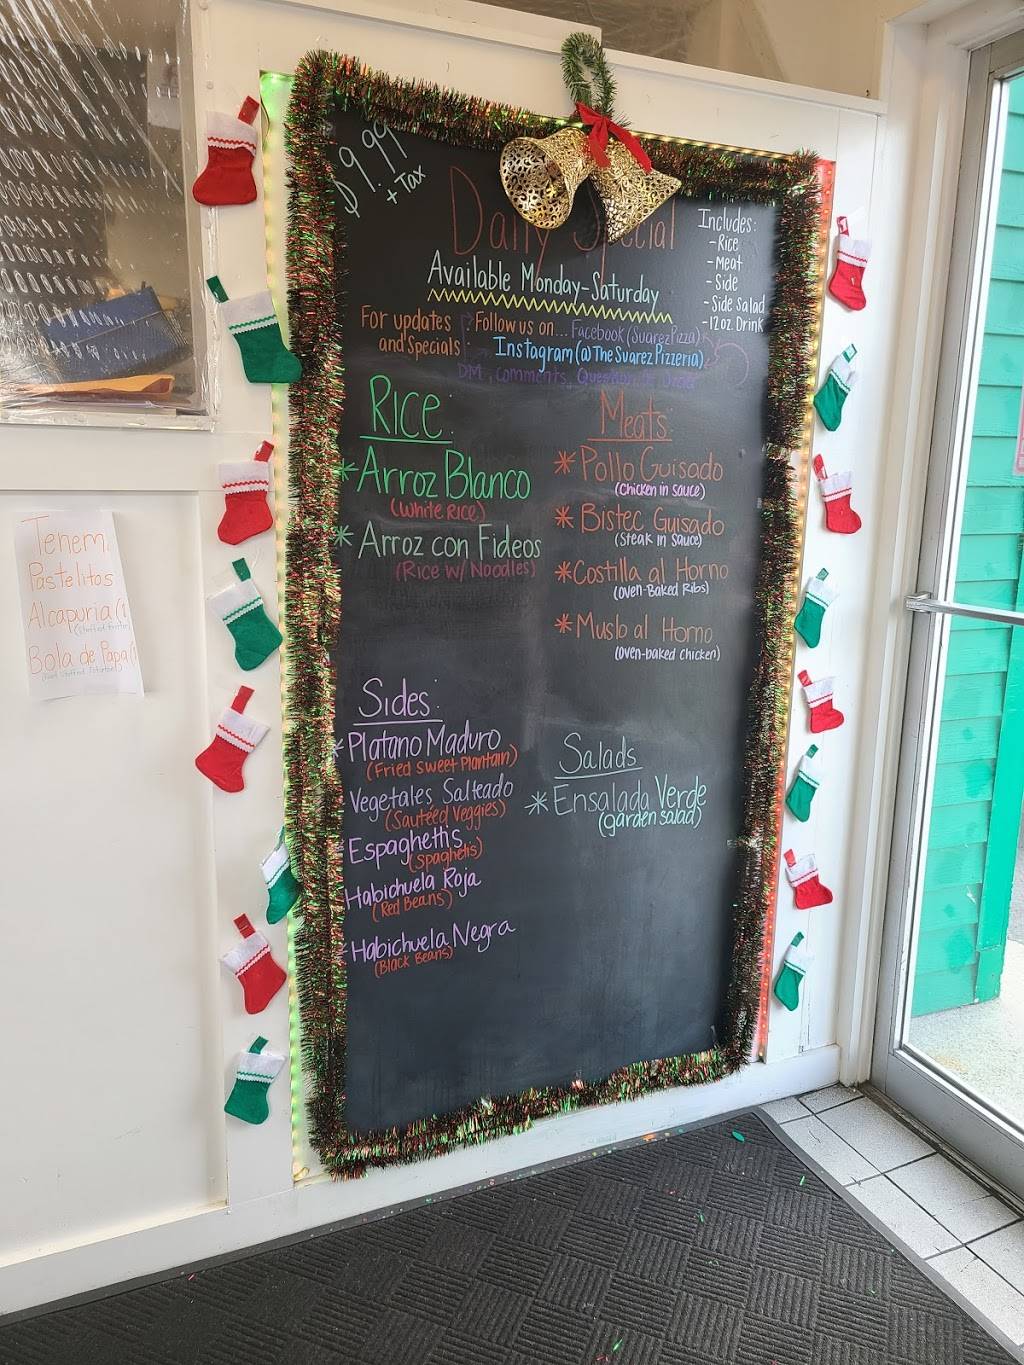 $9.99
+ Tax
Daily Special
Available Monday-Saturday
Includes:
- Rice
- Meat
- Side
- Side Salad
- 12 oz. Drink
For updates
and Specials:
Follow us on... Facebook (SuarezPizza)
Instagram (@TheSuarezPizzeria)
DM, Comments, Question
Rice:
*Arroz Blanco
(White Rice)
*Arroz con Fideos
(Rice w/ Noodles)
Meats:
*Pollo Guisado
(Chicken in sauce)
*Bistec Guisado
(Steak in Sauce)
*Costilla al Horno
(oven-Baked Ribs)
*Muslo al Horno
(oven-baked chicken)
Sides:
*Platano Maduro
(Fried sweet plantain)
Vegetales Salteado
(Sauteéd Veggies)
Espaghettis
(Spaghetis)
Habichuela Roja
(Red Beans)
Habichuela Negra
(Black Beans)
Salads
*Ensalada Verde
(garden salad)
Tenem
Pastelitos
Alcapuria
Bola de Papa